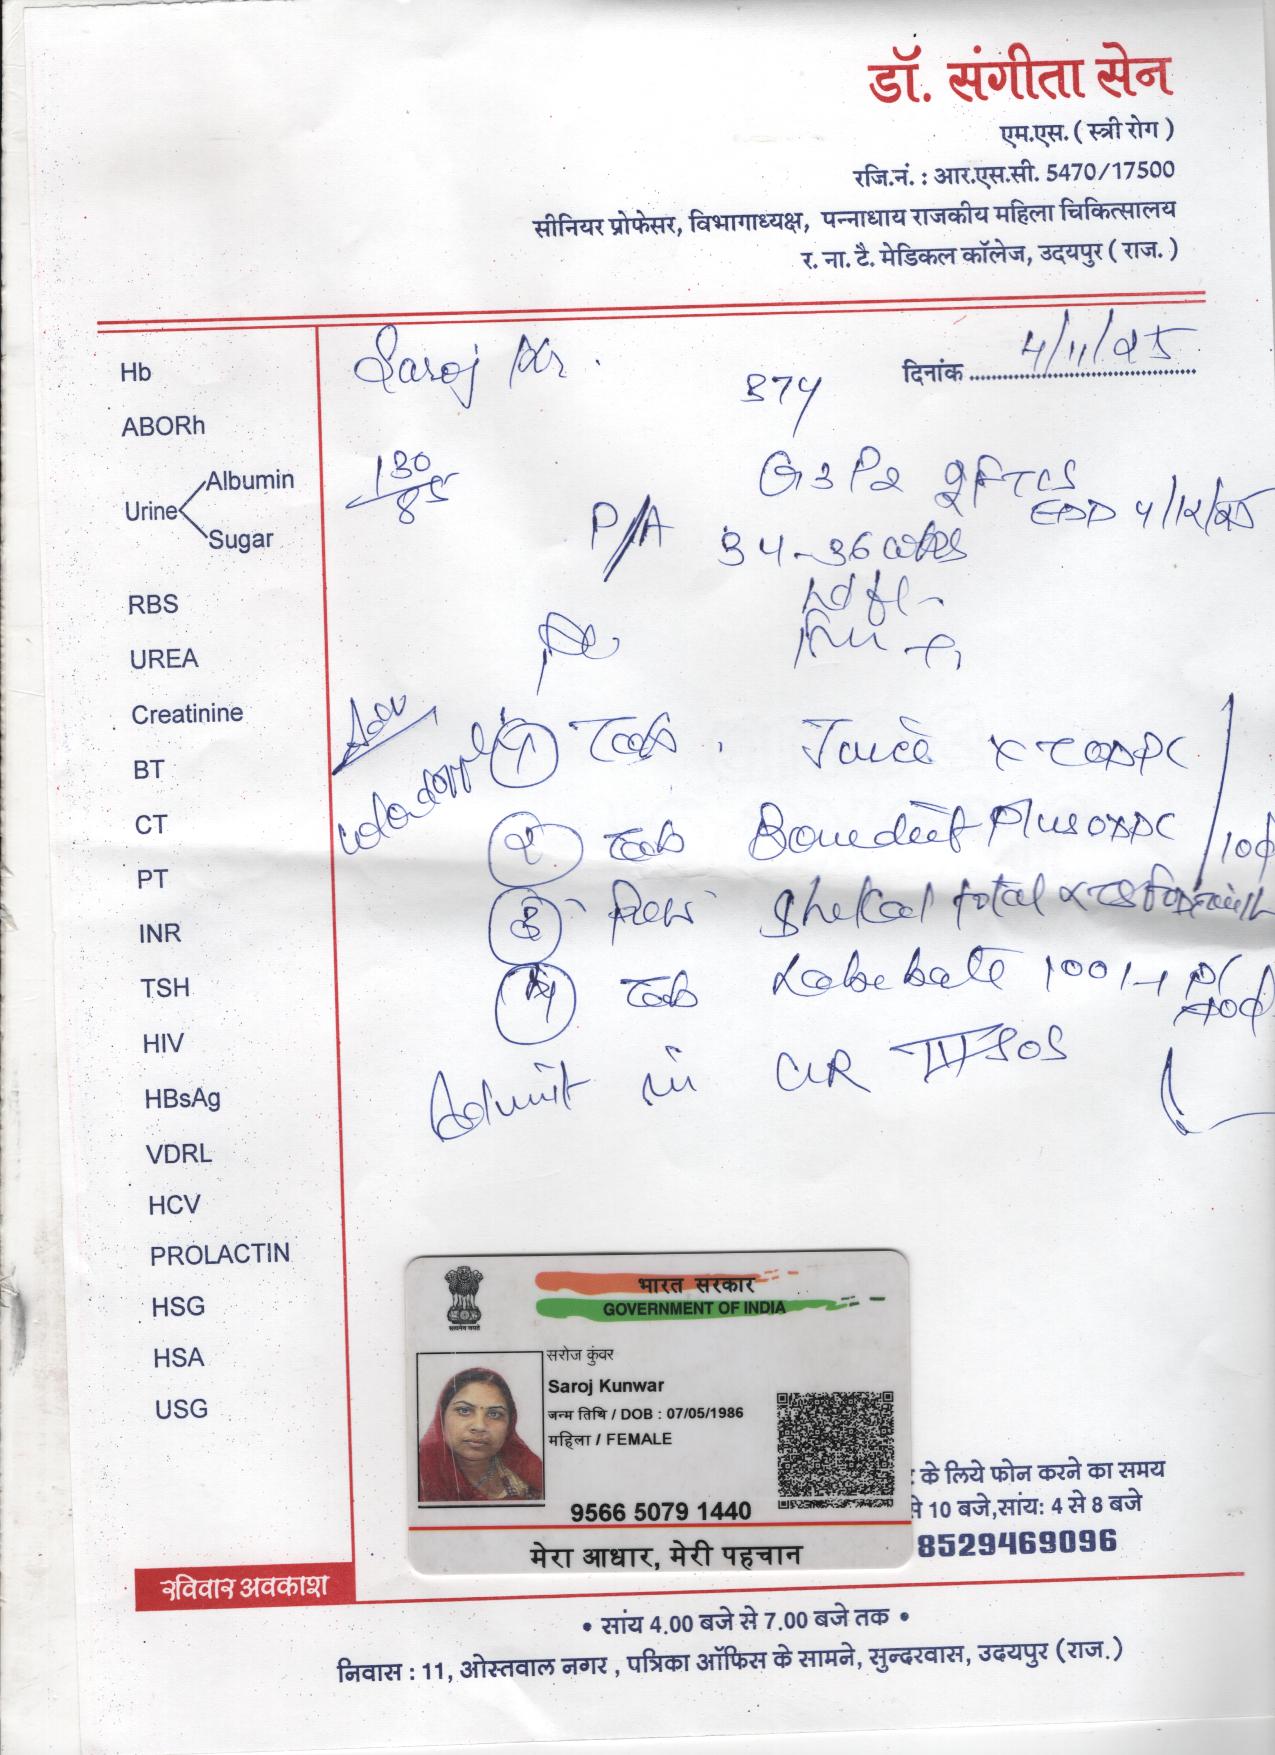 डॉ. संगीता सेन
एम.एस. ( स्त्री रोग )
रजि.नं. : आर.एस.सी. 5470/17500
सीनियर प्रोफेसर, विभागाध्यक्ष, पन्नाधाय राजकीय महिला चिकित्सालय
र. ना. टै. मेडिकल कॉलेज, उदयपुर ( राज. )
दिनांक 4/11/25
Saroj Kr.
37y
130/85
G3P2
EDD 4/12/25
P/A 34-36 wks
Hb
ABORh
Urine
Albumin
Sugar
RBS
UREA
Creatinine
BT
CT
PT
INR
TSH
HIV
HBsAg
VDRL
HCV
PROLACTIN
HSG
HSA
USG
1 Tab.
2 Tab Plus
3 Shelcal total
4 Tab Labebate 100
Admit in III SOS
भारत सरकार
GOVERNMENT OF INDIA
सत्यमेव जयते
सरोज कुंवर
Saroj Kunwar
जन्म तिथि / DOB : 07/05/1986
महिला / FEMALE
9566 5079 1440
मेरा आधार, मेरी पहचान
के लिये फोन करने का समय
से 10 बजे,सांय: 4 से 8 बजे
8529469096
रविवार अवकाश
• सांय 4.00 बजे से 7.00 बजे तक •
निवास : 11, ओस्तवाल नगर , पत्रिका ऑफिस के सामने, सुन्दरवास, उदयपुर (राज.)